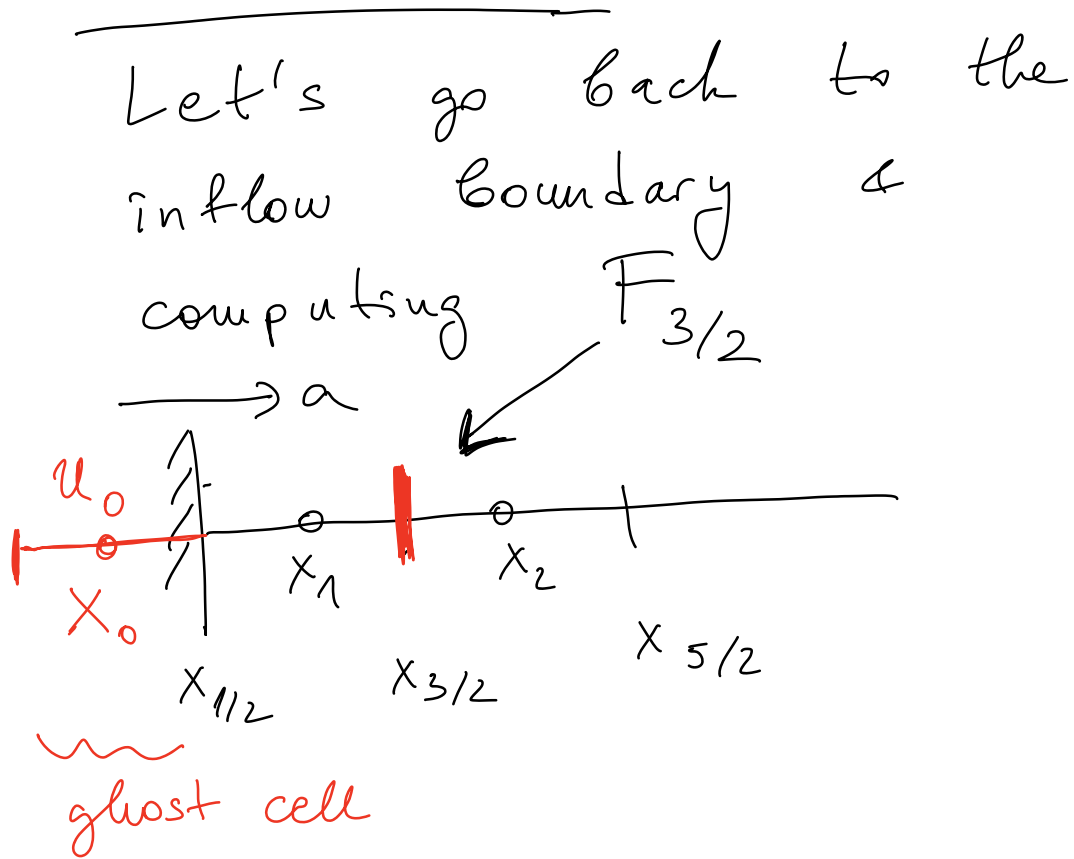 Let's go back to the
inflow boundary &
computing F_{3/2}
→ a
u_0
x_0 x_1 x_2
x_{1/2} x_{3/2} x_{5/2}
ghost cell